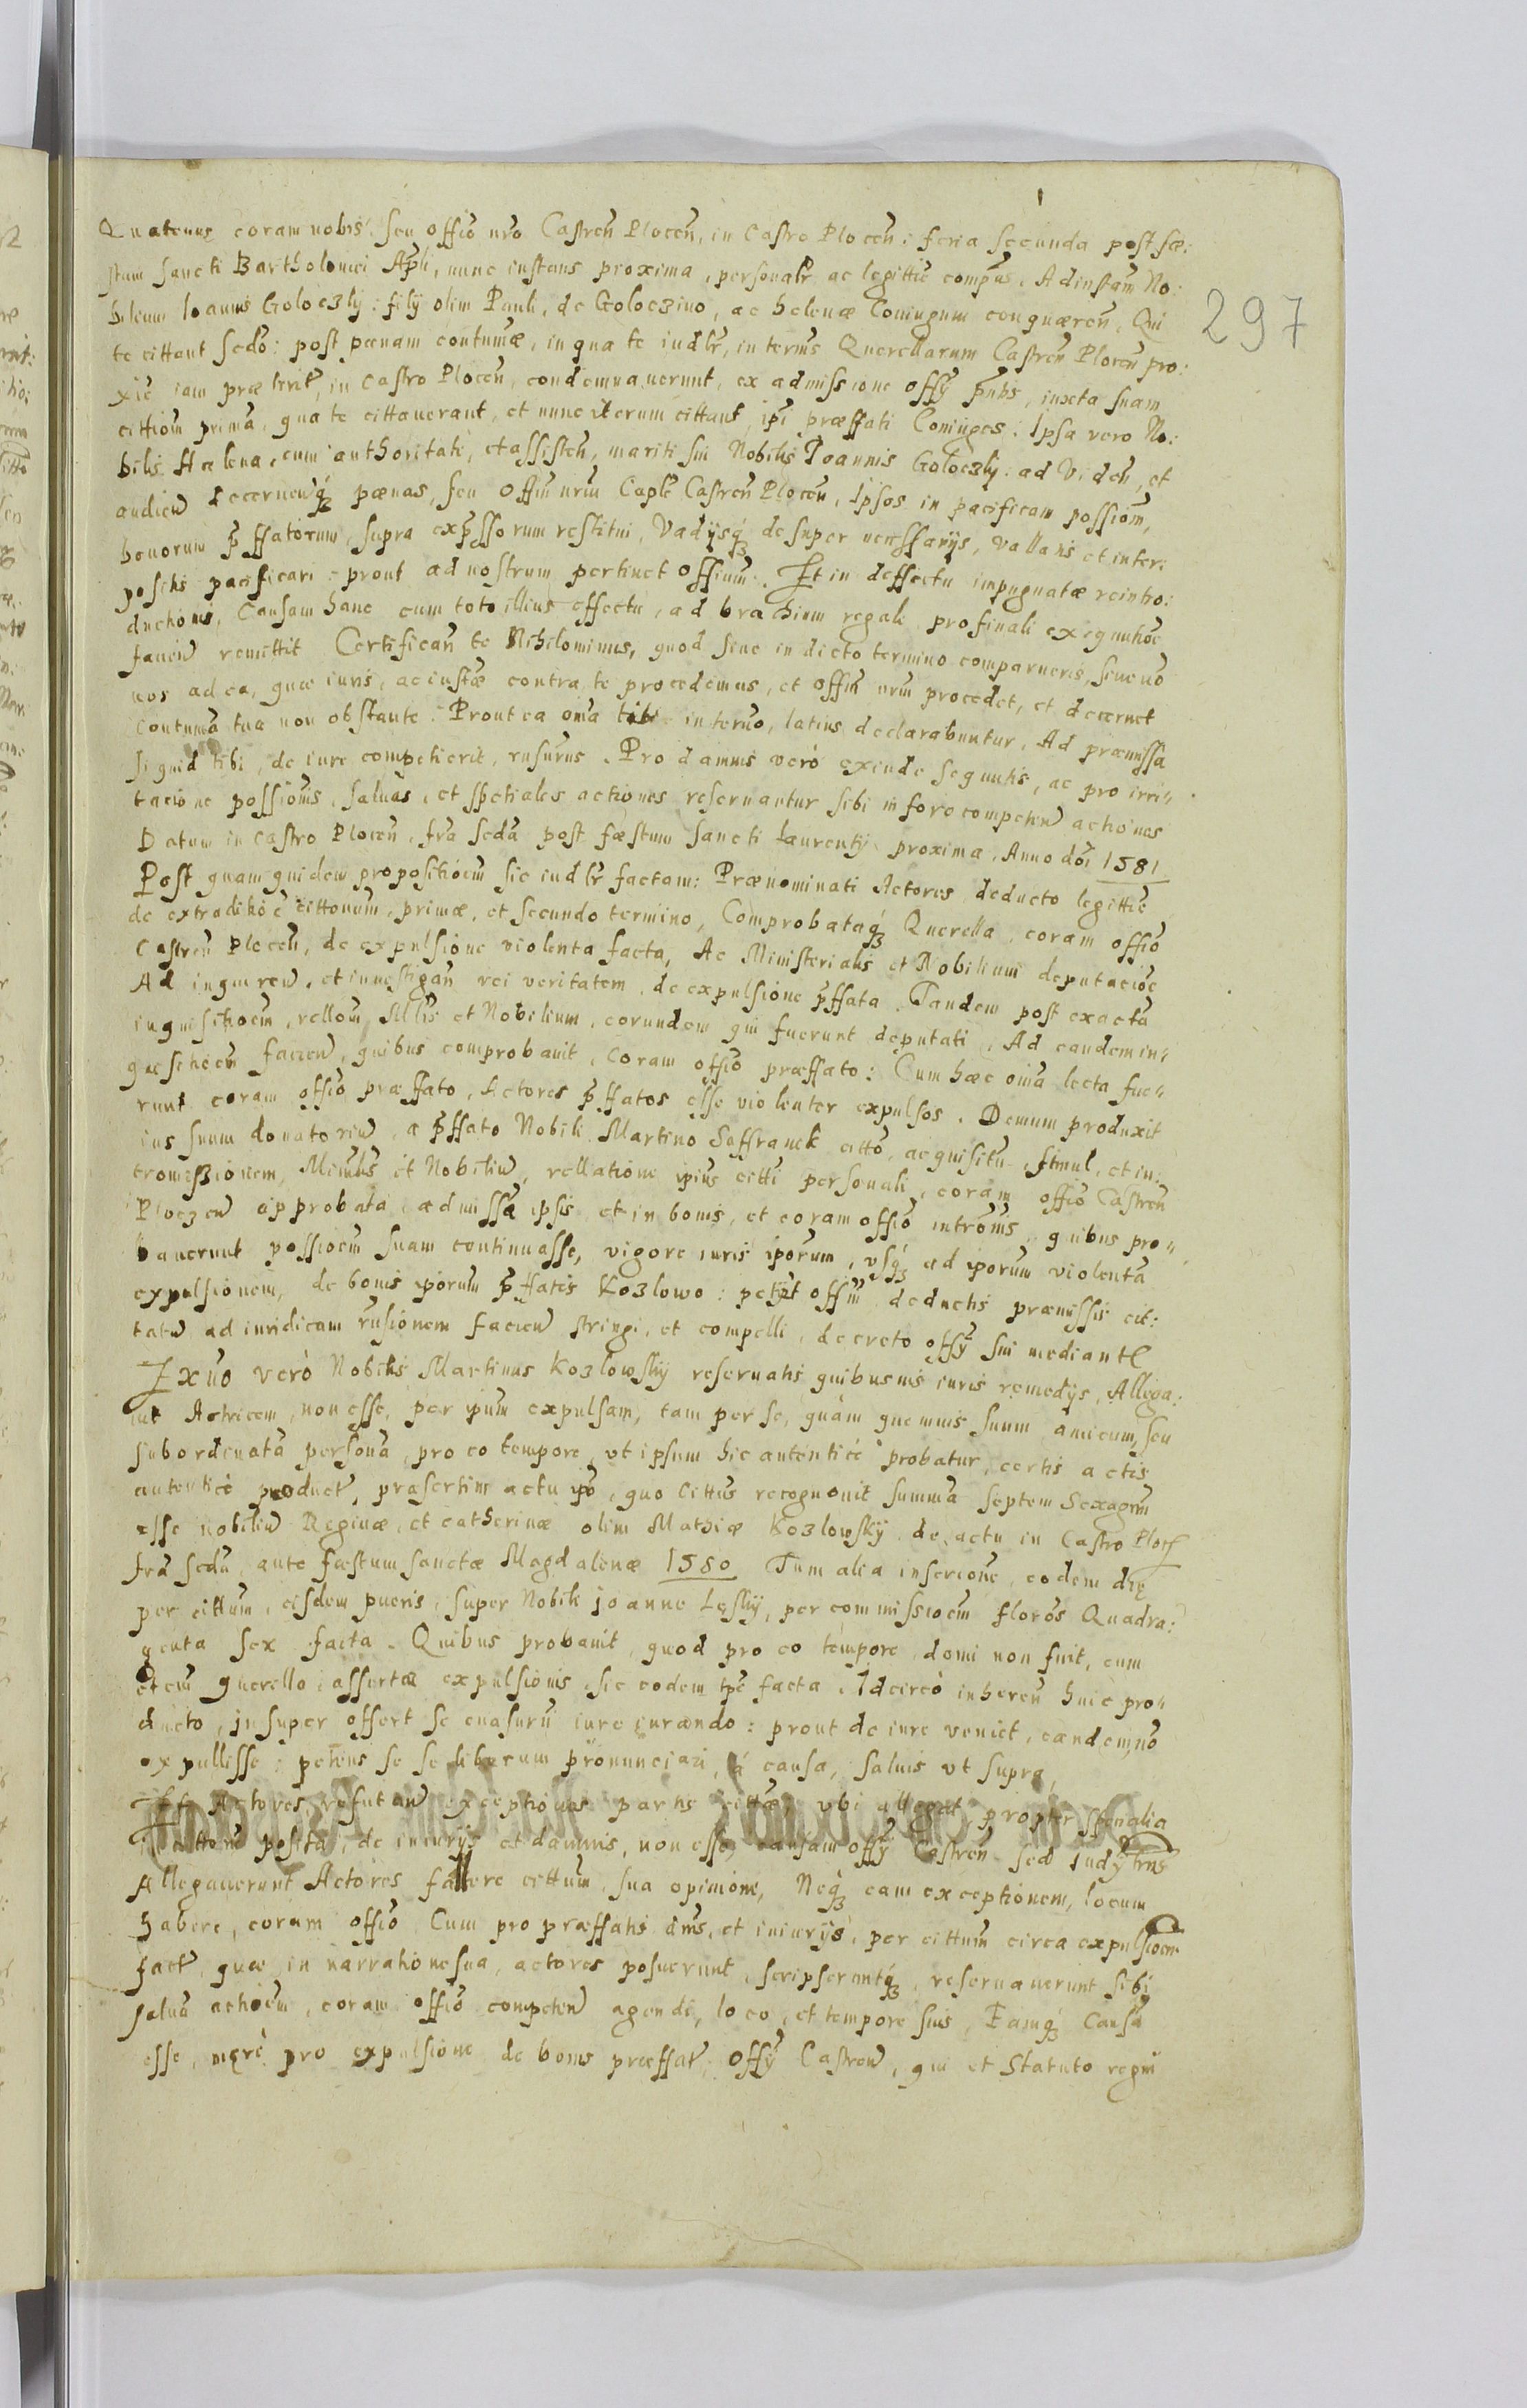 Quatenus coram nobis seu offio nro Castren Plocen, in Castro Plocen: feria secunda post fæ:
stum sancti Bartholomei Apli, nunc instans proxima, personalr ac legittie compas, Ad instam No:
bilium Ioannis Goloczky: filij olim Pauli, de Goloczino, ac helenæ Coniugum conquæren, Qui
te cittant sedo: post pœnam contumæ, in qua te iudlr, in termis Querellarum Castren Plocen pro:
xie iam præterit, in Castro Plocen, condemnauerunt, ex admissione offy pntis, iuxta suam
cittiom prima, qua te cittauerant, et nunc iterum cittant, ipi præffati Coniuges: Ipsa vero No:
bilis Helena, cum authoritate, et assisten, mariti sui Nobilis Ioannis Goloczky: ad Viden, et
audien decernenq pœnas, seu Offim nrm Caple Castren Plocen, Ipsos in pacificam possiom,
bonorum pffatorum, supra expssorum restitui, Vadijsq desuper necessarijs, vallatis et inter:
positis pacificari: prout ad nostrum pertinet Offium. Et in deffectu impugnatæ reintro:
ductionis, Causam hanc cum toto illius effectu, ad brachium regale pro finali exequutioe
facien remittit. Certifican te Nihilominus, quod siue in dicto termino comparueris, siue no
nos ad ea, quæ iuris, ac iustæ contra te procedemus, et offm nrm procedet, et decernet
Contuma tua non obstante. Prout ea oia tibi in termo, latius declarabuntur. Ad præmissa
si quid tibi, de iure competierit, rnsurus. Pro damnis verò exinde sequutis, ac pro irri"
tatione possiois, saluas, et spetiales actiones reseruantur sibi in foro competen actiones
Datum in Castro Plocen, fra seda post fæstum sancti Laurentij proxima, Anno doi 1581
Post quam quidem propositioem sic iudlr factam: Prænominati Actores deducto legittie
de extraditioe cittonum, primæ, et secundo termino, Comprobataq Querella, coram offio
Castren Plocen, de expulsione violenta facta, Ac Ministerialis et Nobilium deputatioe
Ad inquiren, et inuestigan rei veritatem, de expulsione pffata. Tandem post exacta
inquisitioem, rellom Mlis et Nobilium, eorundem qui fuerunt deputati, Ad eandem in"
quisitioem facien, quibus comprobauit, coram offio præffato: Cum hæc oia lecta fue"
runt coram offio præffato, Actores pffatos esse violenter expulsos. Demum produxit
ius suum donatoriu, a pffato Nobili Martino Saffranek citto, acquisitu, simul, et in:
tromissionem, Minlis et Nobiliu, rellatione ipius citti personali, coram offio Castren
Ploczen approbata, admissa ipsis et in bonis, et coram offio intromis, quibus pro"
bauerunt possioem suam continuasse, vigore iuris iporum, vsq ad iporum violenta
expulsionem, de bonis iporum pffatis Kozlowo: petijt offm deductis præmissis cit:
tatu ad iuridicam rnsionem facien stringi, et compelli, decreto offy sui mediante
Ex ao verò Nobilis Martinus Kozlowsky reseruatis quibusuis iuris remedys, Allega:
uit Actricem, non esse, per ipum expulsam, tam per se, quàm quemuis suum amicum, seu
subordinatã personã, pro eo tempore, vt ipsum hic autenticè probatur, certis actis
autenticè product, præsertim actu ipo, quo Cittus recognouit summa septem Sexagem
esse nobiliu Reginæ, et catherinæ olim Mathiæ Kozlowsky de actu in Castro Plocen
fra seda, ante fæstum sanctæ Magdalenæ 1580. Tum alia inscrione, eodem die
per cittum, eisdem pueris, super Nobili ioanne Lesky, per commissioem floros Quadra:
genta sex facta. Quibus probauit, quod pro eo tempore domi non fuit, cum
etem querello assertæ expulsionis, sic eodem tpe facta. Idcircò inheren huic pro"
ducto, insuper offert se euasuru iure iurando: prout de iure veniet, eandem no
expullisse: petens se se liberum pronunciari, à causa, saluis vt supra,
Et Actores refutan exceptiones partis cittæ, vbi allegat propter spenalia
in cittone posita, de iniurijs et damnis, non esse causam offy Castren sed Iudy trris
Allegauerunt Actores fallere cittum, sua opinione, Neq eam exceptionem, locum
habere, coram offio. Cum pro præffatis dnis, et iniurijs, per cittum circa expulsioem
fact, quæ in narrationesua, actores posuerunt, scripseruntq reseruauerunt sibi
salua actioem, coram offio competen agendi, loco, et tempore suis, Eamq Causa
esse, merè pro expulsione de bonis præffat: Offy Castren, qui et Statuto regni
297